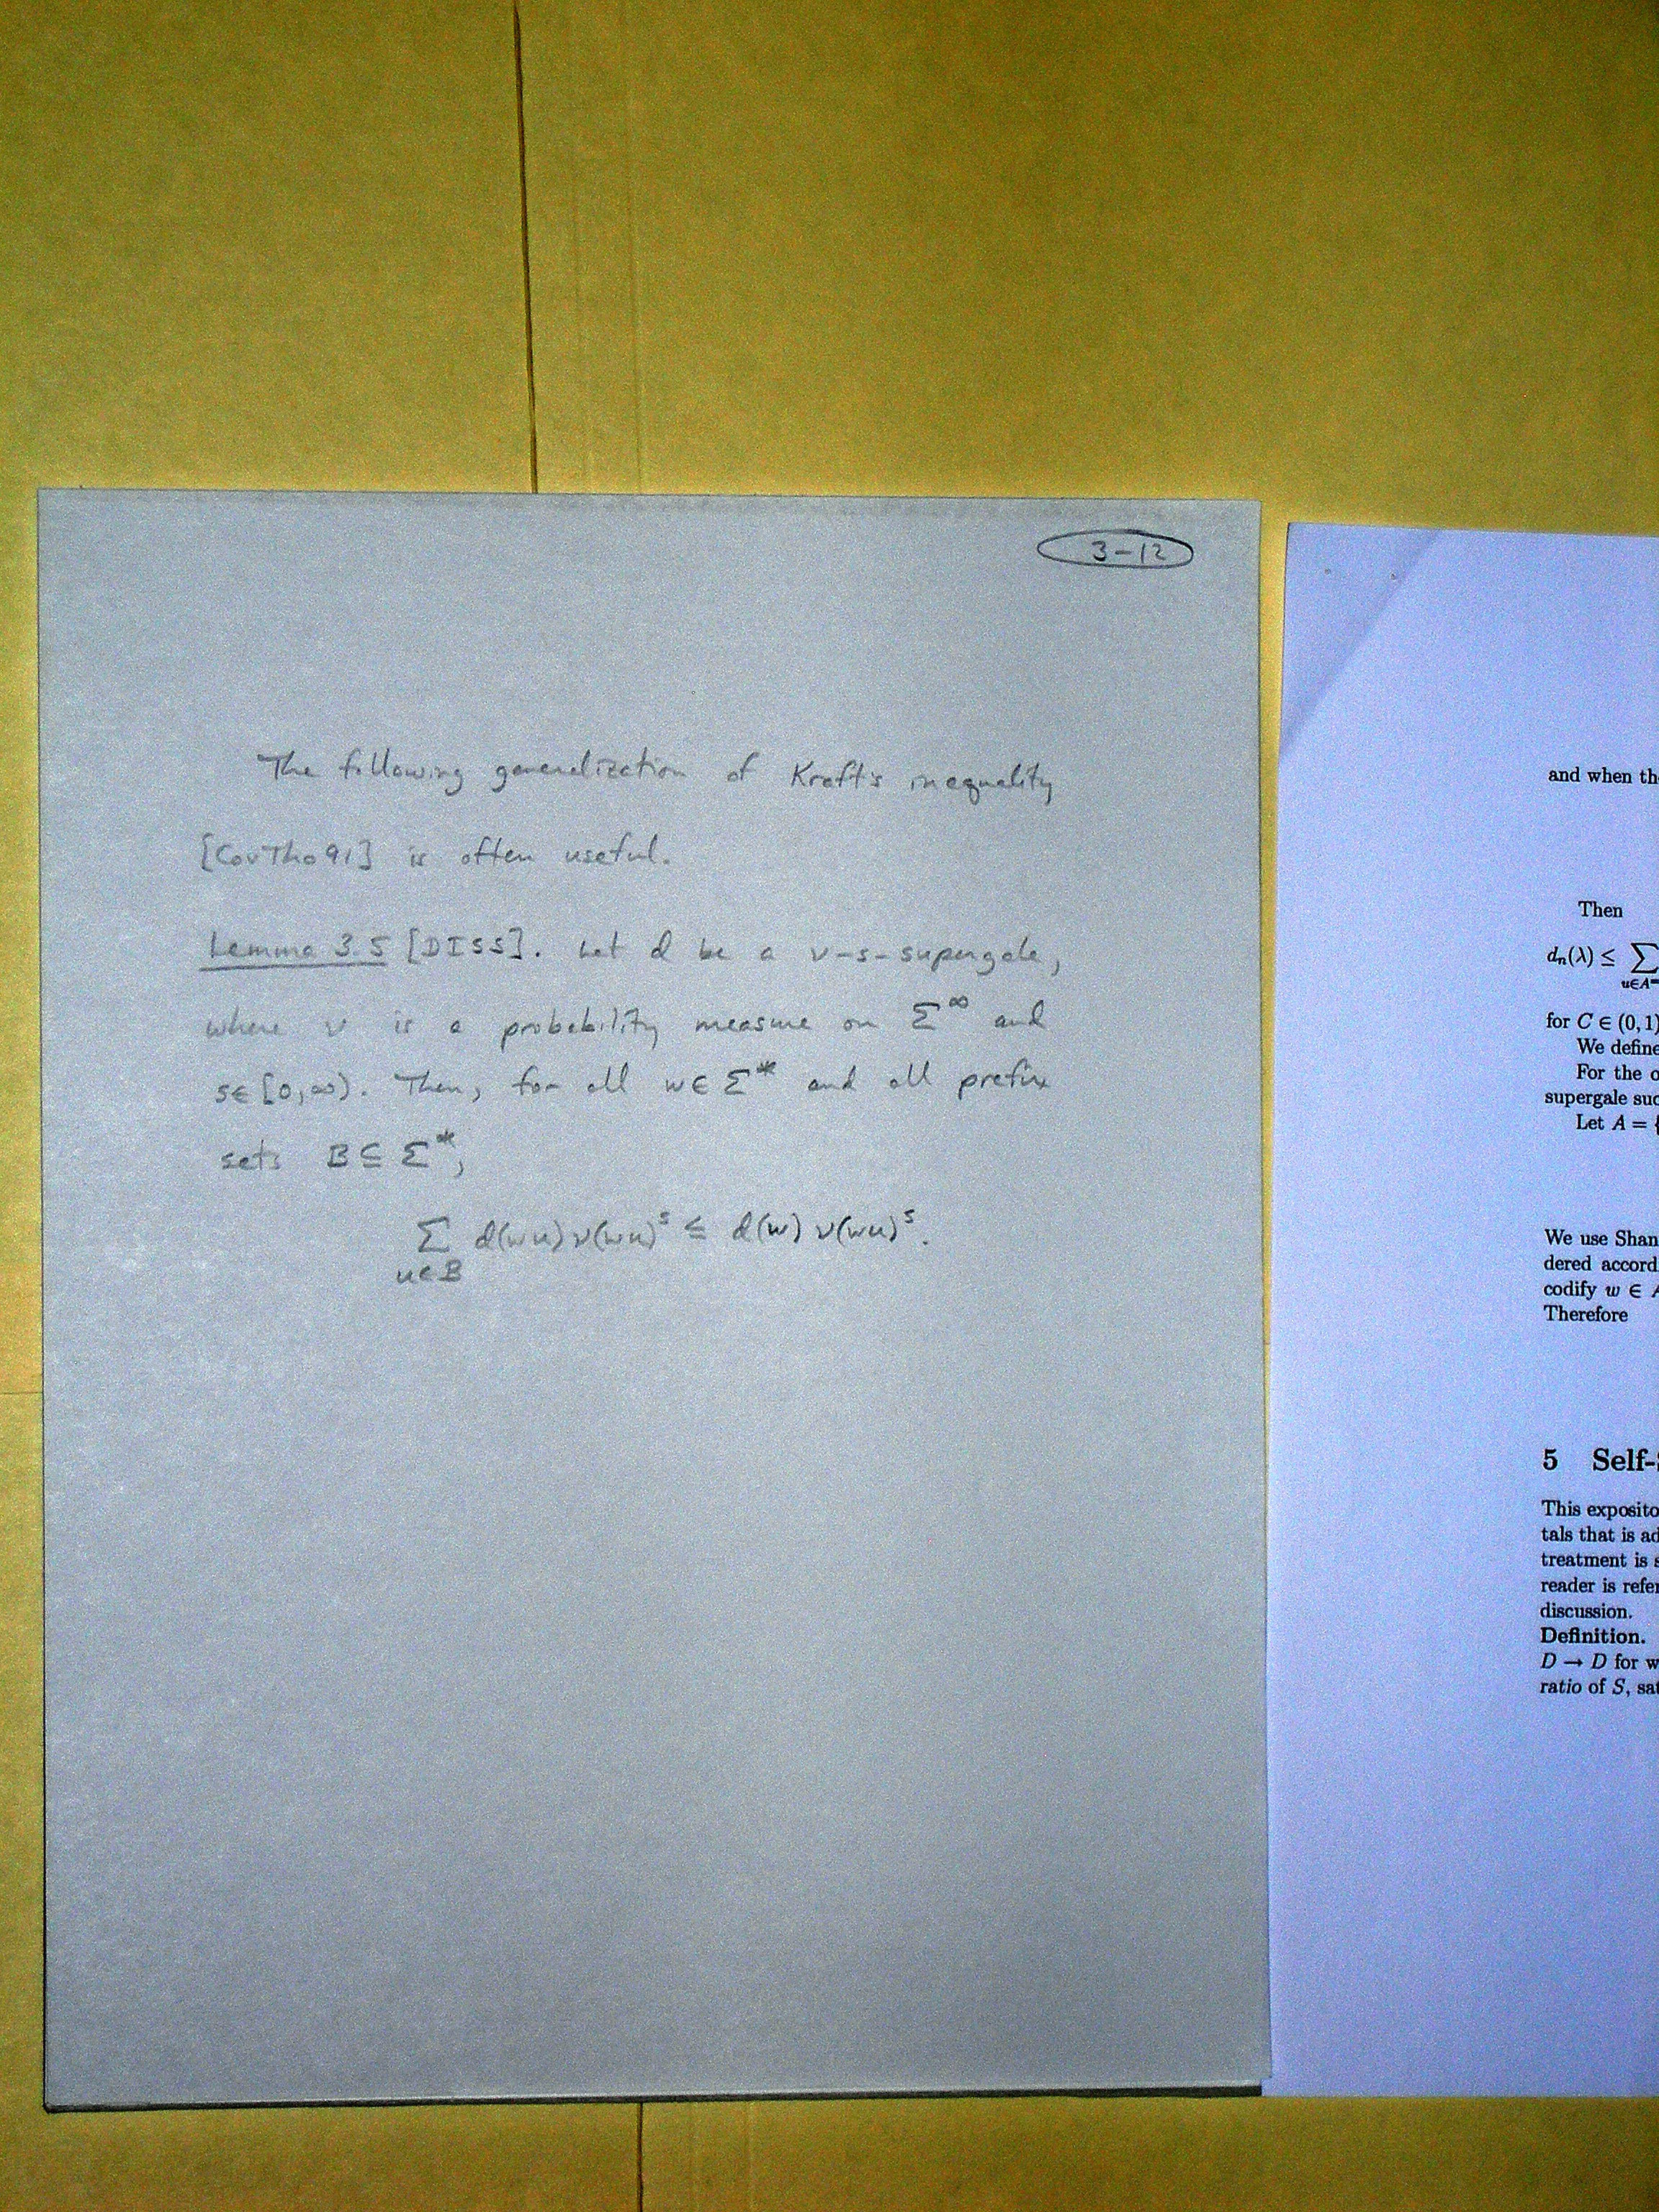 3-12
The following generalization of Kraft's inequality
[CovTho91] is often useful.
Lemma 3.5 [DISS]. Let d be a ν-s-supergale,
where ν is a probability measure on Σ^∞ and
s∈[0,∞). Then, for all w∈Σ* and all prefix
sets B⊆Σ*,
∑ d(wu)ν(wu)^s ≤ d(w)ν(wu)^s.
u∈B
and when th
Then
dₙ(λ) ≤ ∑
u∈A⁼
for C ∈ (0,1)
We define
For the o
supergale suc
Let A = {
We use Shan
dered accord
codify w ∈ A
Therefore
5 Self-S
This exposito
tals that is ad
treatment is s
reader is refer
discussion.
Definition.
D → D for w
ratio of S, sat